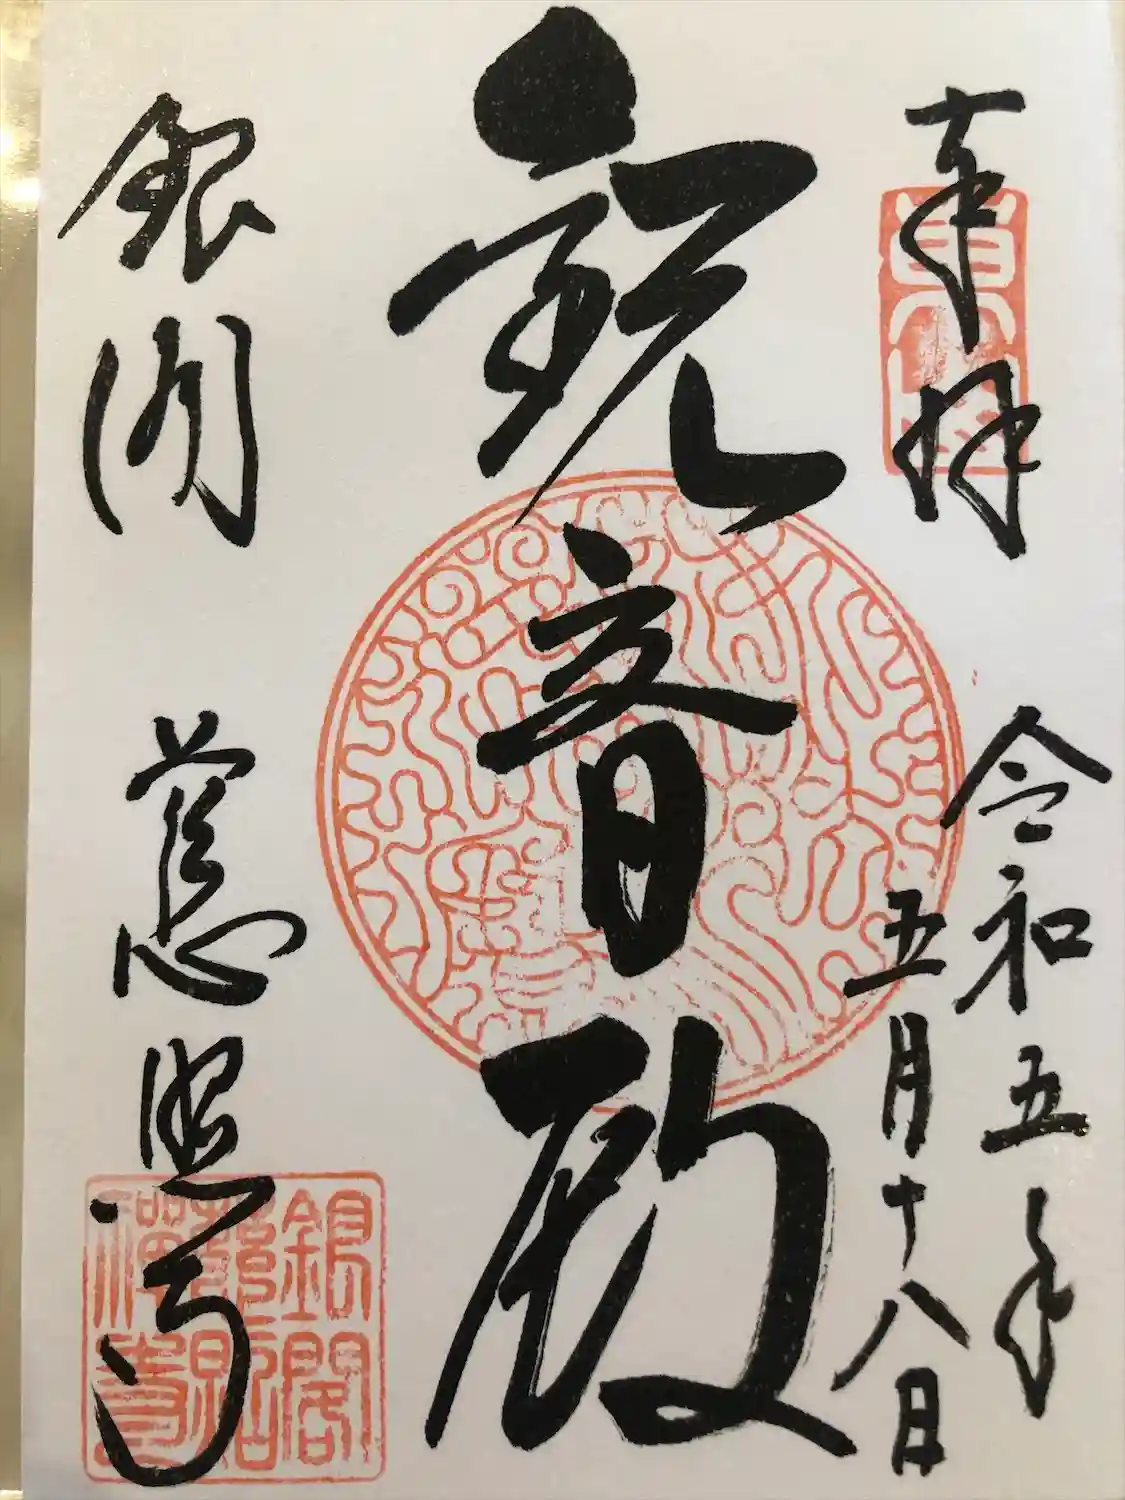 奉拝
令和五年
五月十八日
観音殿
銀閣 慈照寺
銀閣
慈照
禅寺